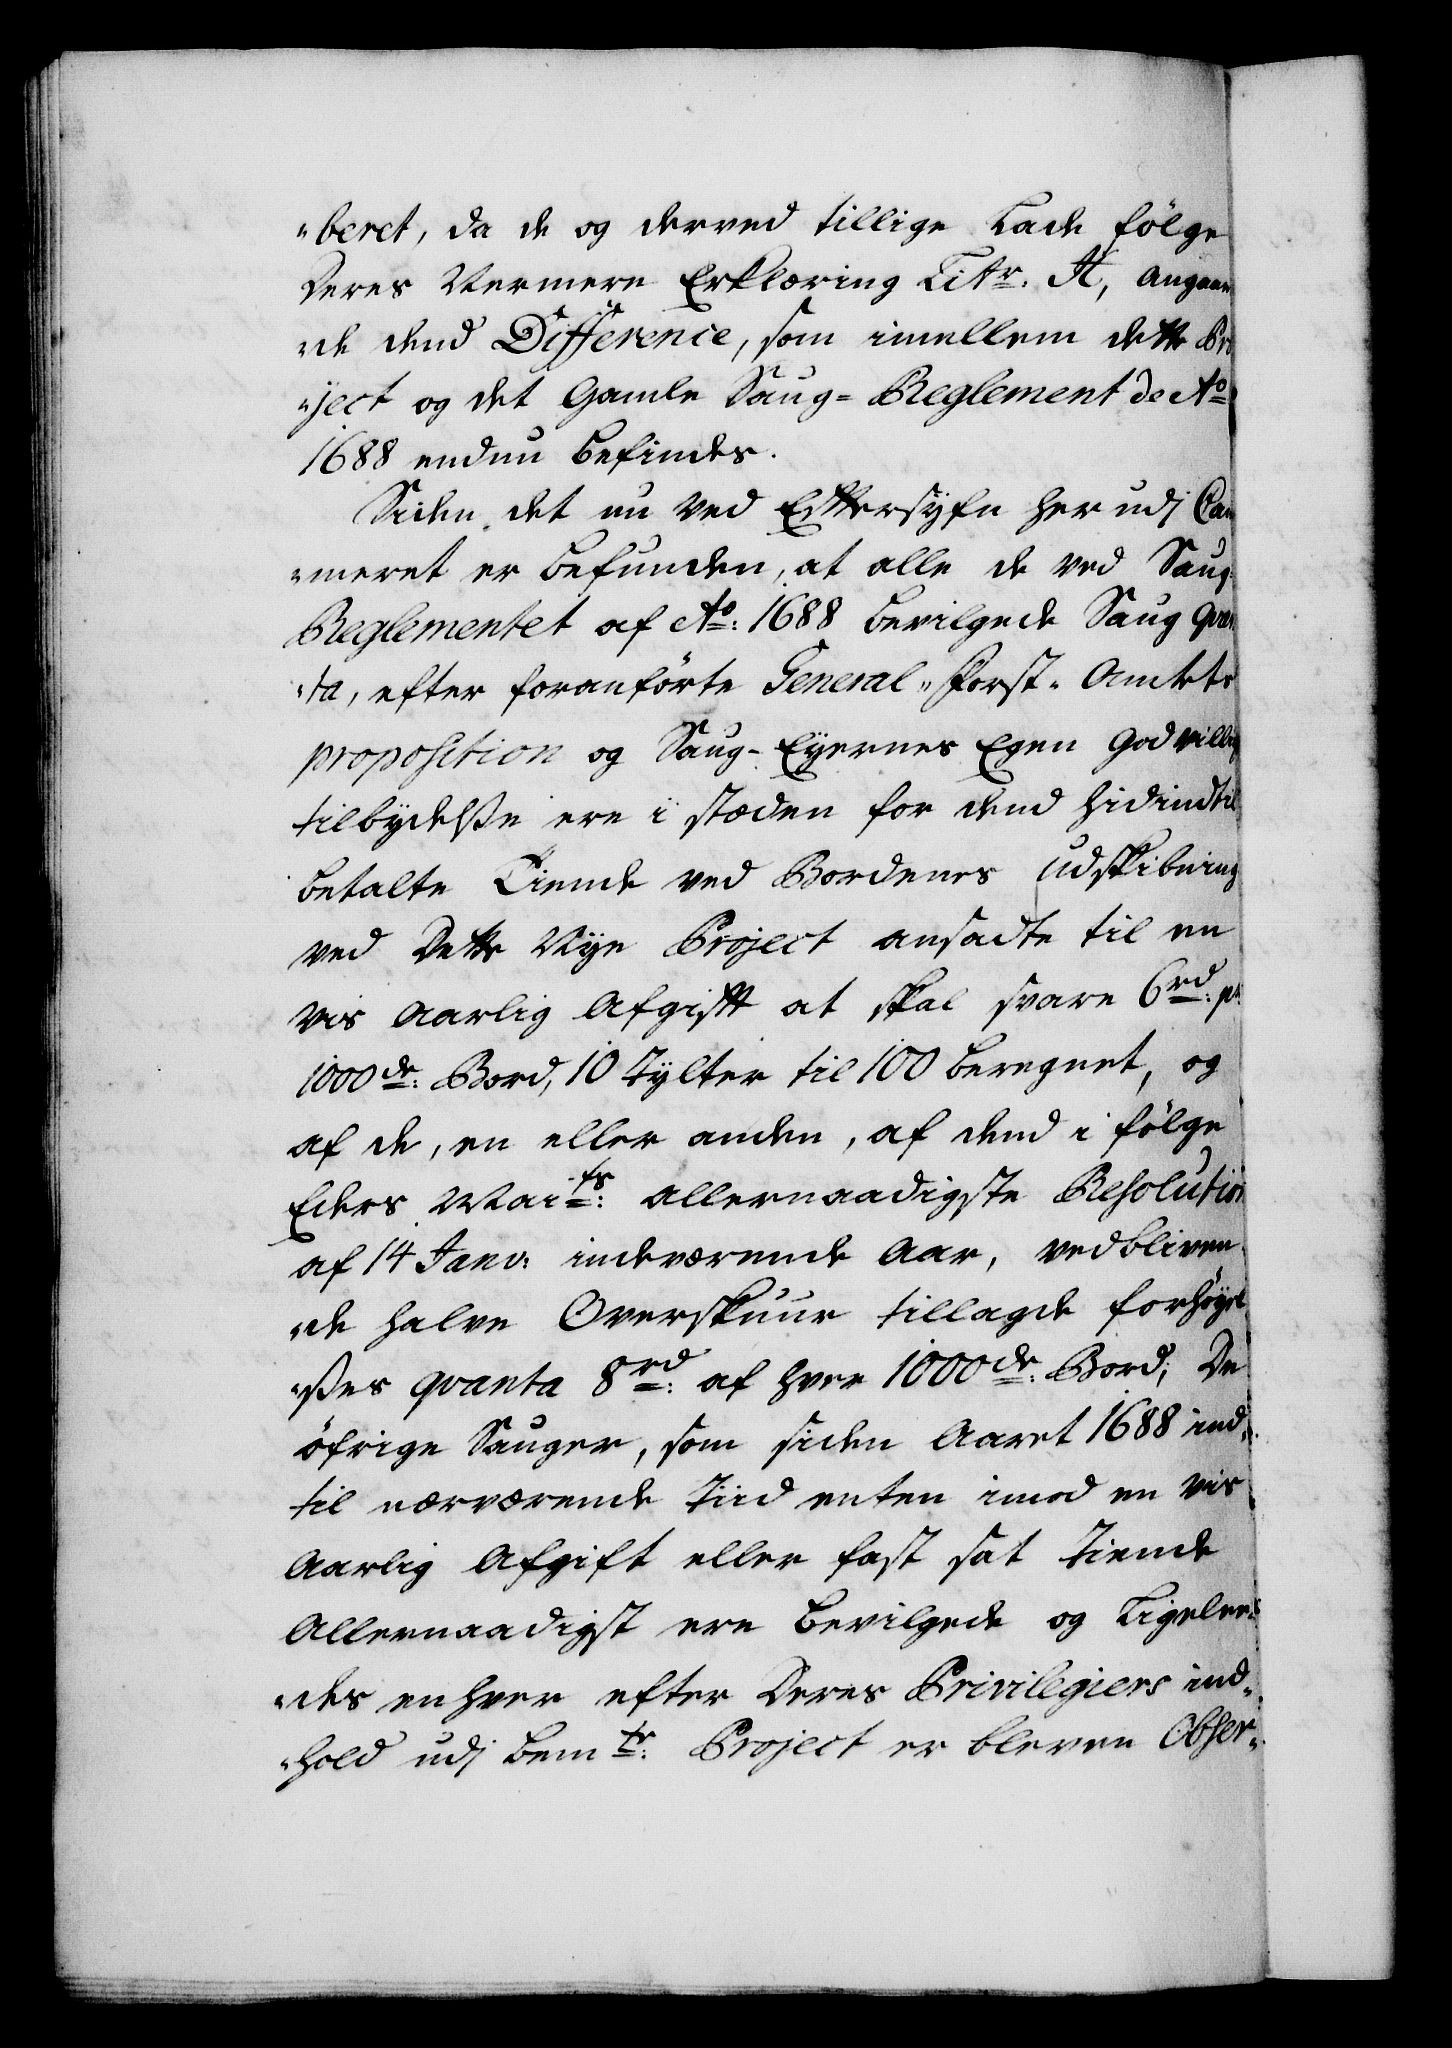 "beret, da de og derved tillige Lade følge
Deres Nermere Erklæring Littr. A, angaaen
"de dend Difference, som imellem dette Pro
"ject og det Gamle Saug= Reglement de Ao
1688 endnu befindes.
Siden det nu ved Efftersyfn her udj Cam
"meret er befunden, at alle de ved Saug
Reglementet af Ao: 1688 bevilgede Saug qvan
"ta, efter foranførte General "Forst" Amtets
proposition og Saug-Eyernes Egen Godvillig
tilbydelsse ere i stæden for dend hidindtil
betalte Tiende ved Bordenes Udskibning
ved Dette Nye Project ansadte til en
vis Aarlig Afgifft at skal svare 6rd: pr
1000de: Bord, 10 Tylter til 100 beregnet, og
af de, en eller anden, af dend i følge
Eders Maits: allernaadigste Resolution
af 14 Janv: indeværende Aar, vedbliven
"de halve Overskuur tillagde forhøyel
"sses qvanta 8rd: af hver 1000de: Bord; De
øfrige Sauger, som siden Aaret 1688 ind„
til nærværende Tiid enten imod en vis
Aarlig Afgift eller fast sat Tiende
Allernaadigst ere bevilgede og Ligelee„
"des enhver efter Deres Privilegiers ind„
"hold udj bemte: Project er bleven Obser„